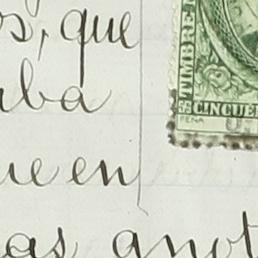 os, que
rba
ue en
as anot
TIMBRE
CINCUE
PENA